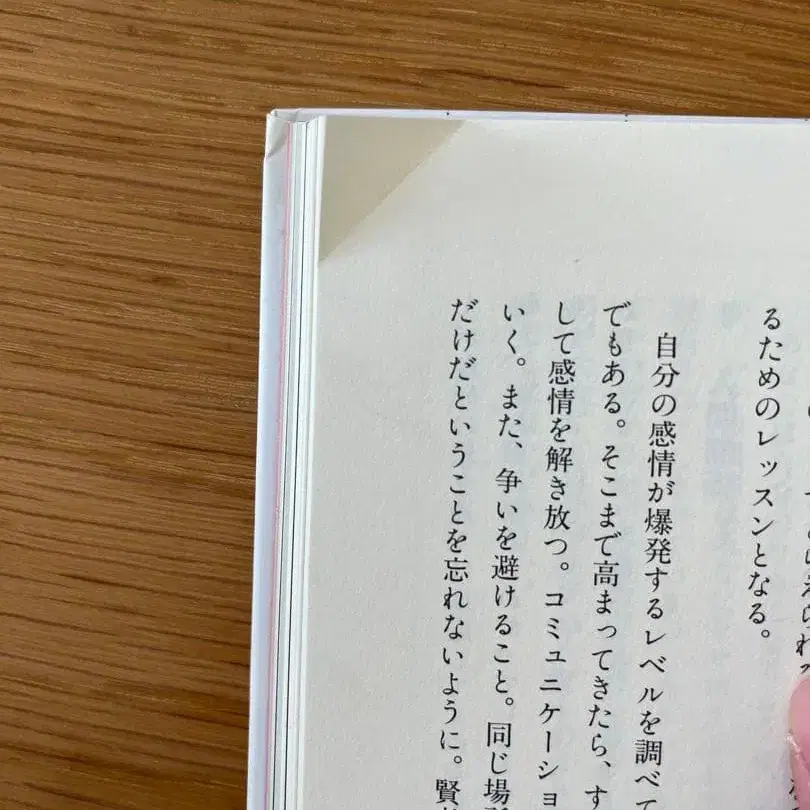 るためのレッスンとなる。
自分の感情が爆発するレベルを調べて
でもある。そこまで高まってきたら、す
して感情を解き放つ。コミュニケーショ
いく。また、争いを避けること。同じ場
だけだということを忘れないように。賢